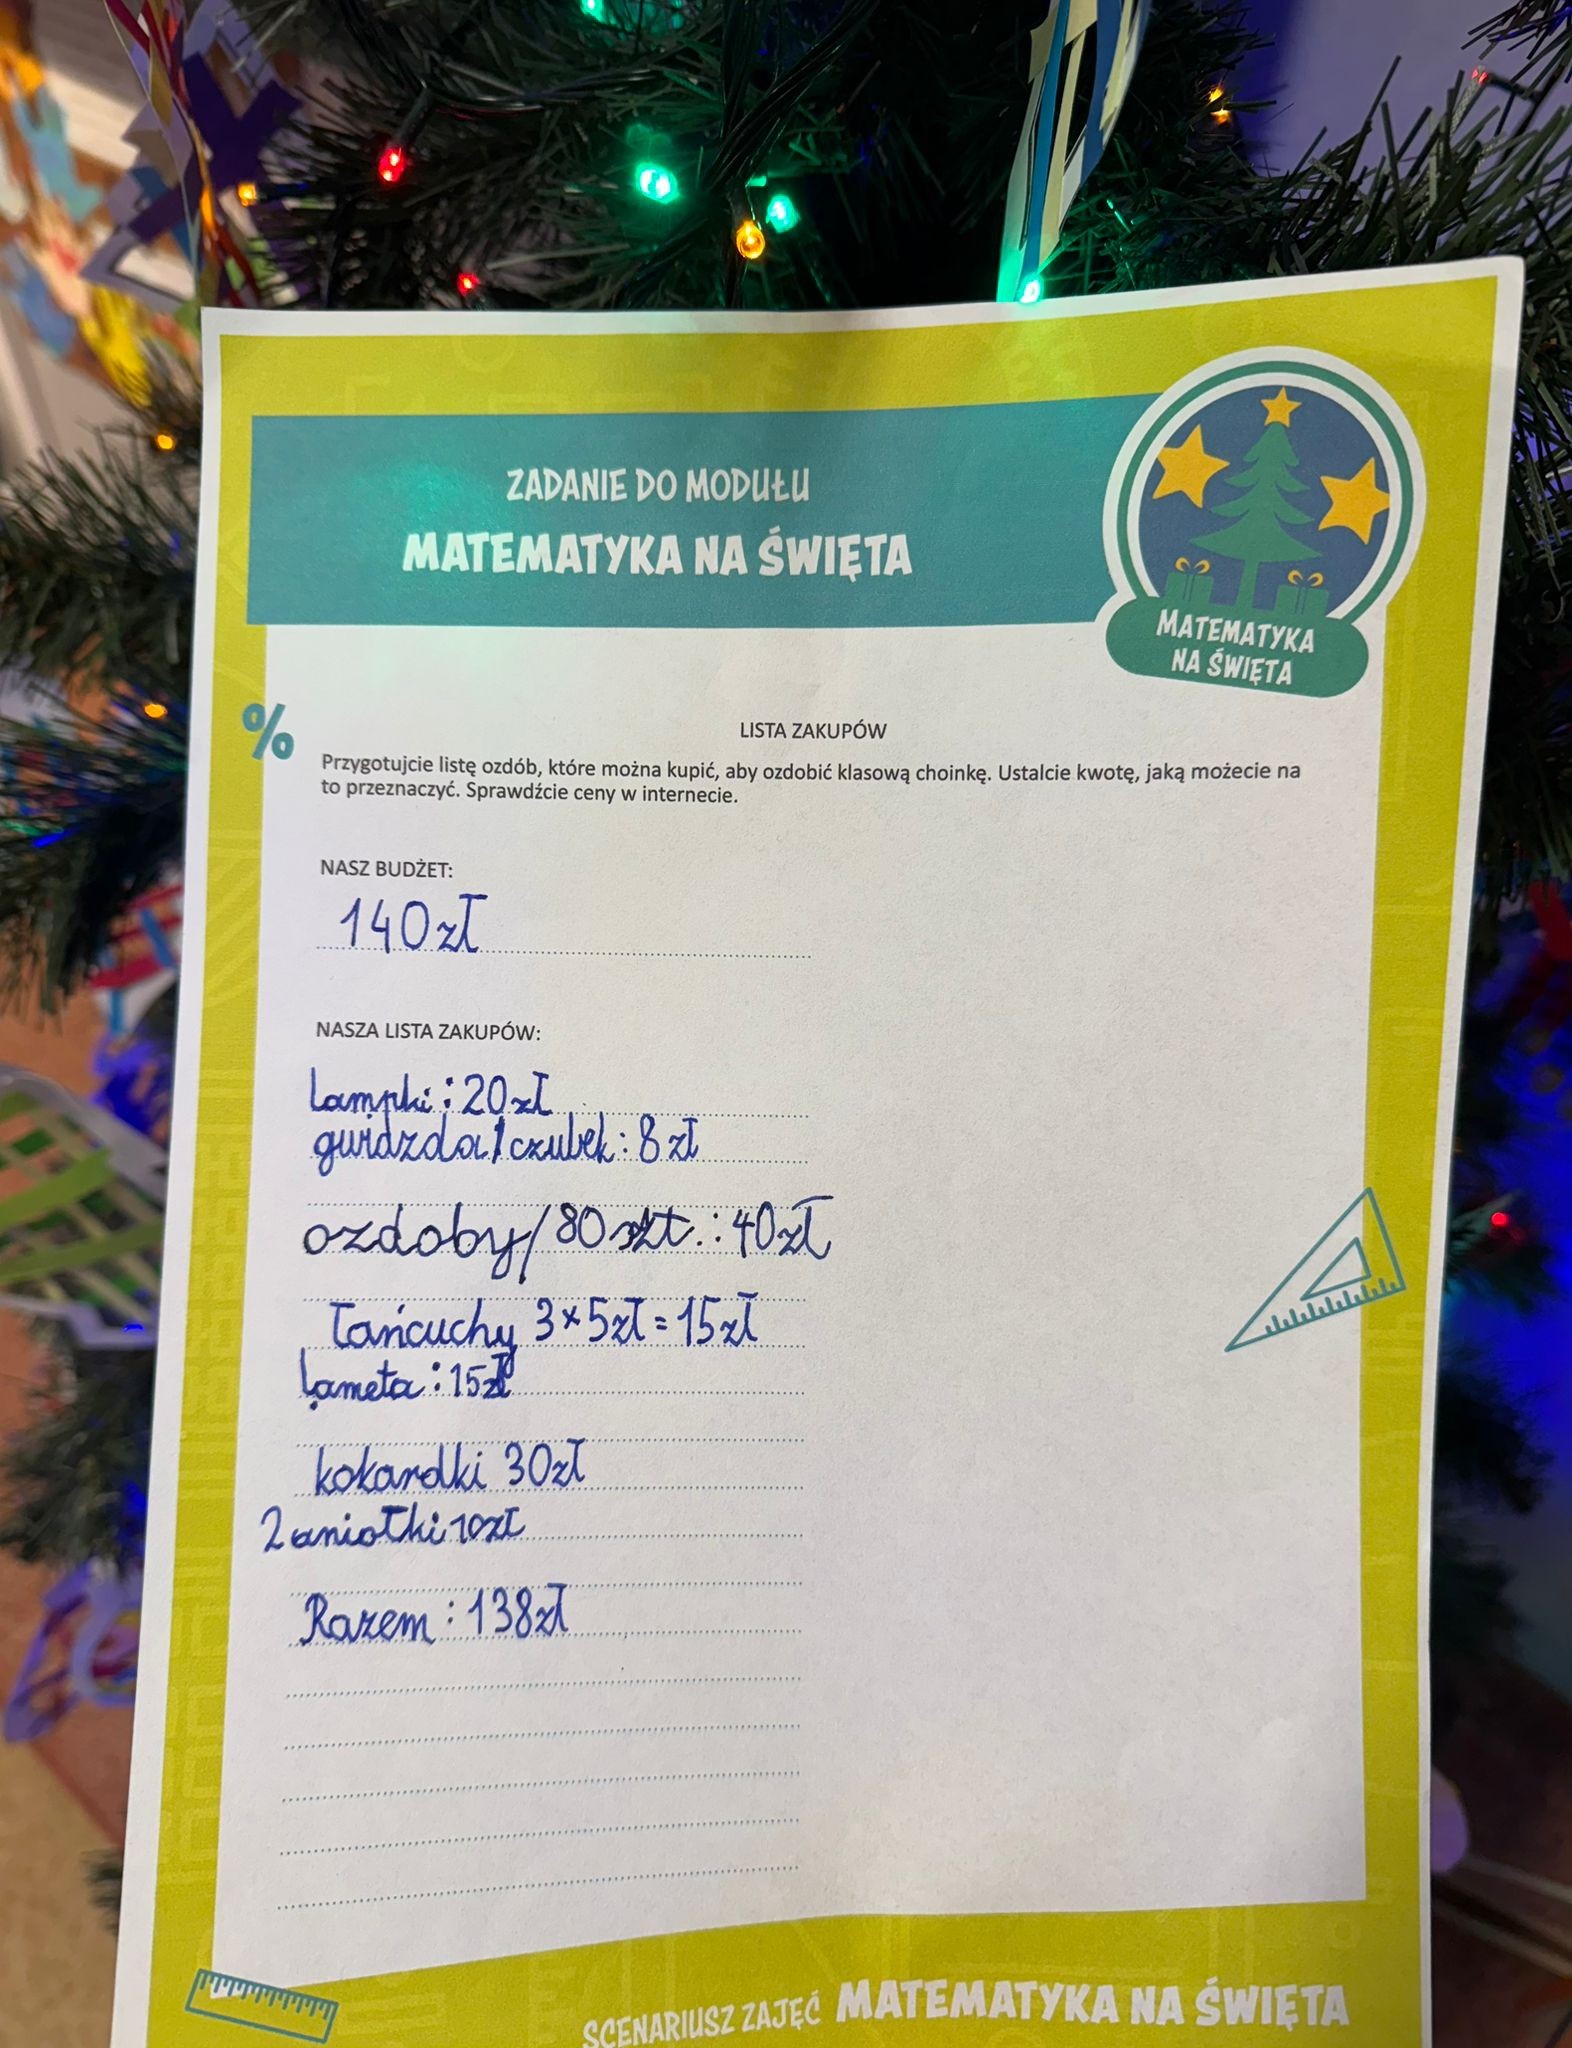 ZADANIE DO MODUŁU
MATEMATYKA NA ŚWIĘTA
MATEMATYKA
NA ŚWIĘTA
%
LISTA ZAKUPÓW
Przygotujcie listę ozdób, które można kupić, aby ozdobić klasową choinkę. Ustalcie kwotę, jaką możecie na
to przeznaczyć. Sprawdźcie ceny w internecie.
NASZ BUDŻET:
140zł
NASZA LISTA ZAKUPÓW:
Lampki: 20zł
gwiazda/czubek: 8 zł
ozdoby/80 szt.: 40zł
Łańcuchy 3×5zł=15zł
Lameta: 15zł
kokardki 30zł
2 aniołki 10zł
Razem: 138zł
SCENARIUSZ ZAJĘĆ MATEMATYKA NA ŚWIĘTA